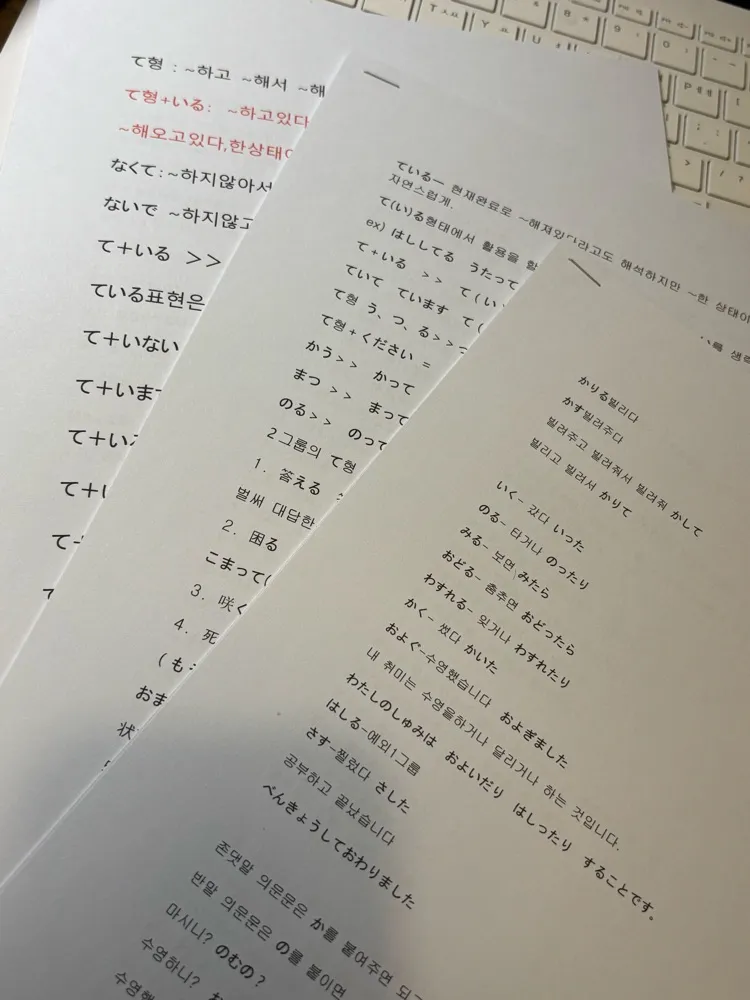 て形 : ~하고 ~해서 ~해
て形+いる: ~하고있다
~해오고있다,한상태
なくて:~하지않아서
ないで ~하지않고
て+いる >>
ている표현은
て+いない
て+いま
て+い
て+
て

ている- 현재완료로 ~해져와 라고도 해석하지만 ~한 상태이
자연스럽게.
て(い)る형태에서 활용을 할
ex) はししてる うたって
て+いる >> て(い
ていて ています て(
て형 う、つ、る>>
て형+ください =
かう>> かって
まつ >> まって
のる>> のって
2그룹의 て형
1. 答える
벌써 대답한
2. 困る
こまって(
3. 咲く
4. 死
(も
おま
状
를 생략

かりる빌리다
かす빌려주다
빌려주고 빌려줘서 빌려줘 かして
빌리고 빌려서 かりて
いく- 갔다 いった
のる- 타거나 のったり
みる- 보면 みたら
おどる- 춤추면 おどったら
わすれる- 잊거나 わすれたり
かく- 썼다 かいた
およぐ-수영했습니다 およぎました
내 취미는 수영을하거나 달리거나 하는 것입니다.
わたしのしゅみは およいだり はしったり することです。
はしる-예외1그룹
さす-찔렀다 さした
공부하고 끝났습니다
べんきょうしておわりました
존댓말 의문문은 か를 붙여주면 되
반말 의문문은 の를 붙이면
마시니? のむの?
수영하니?
수영했